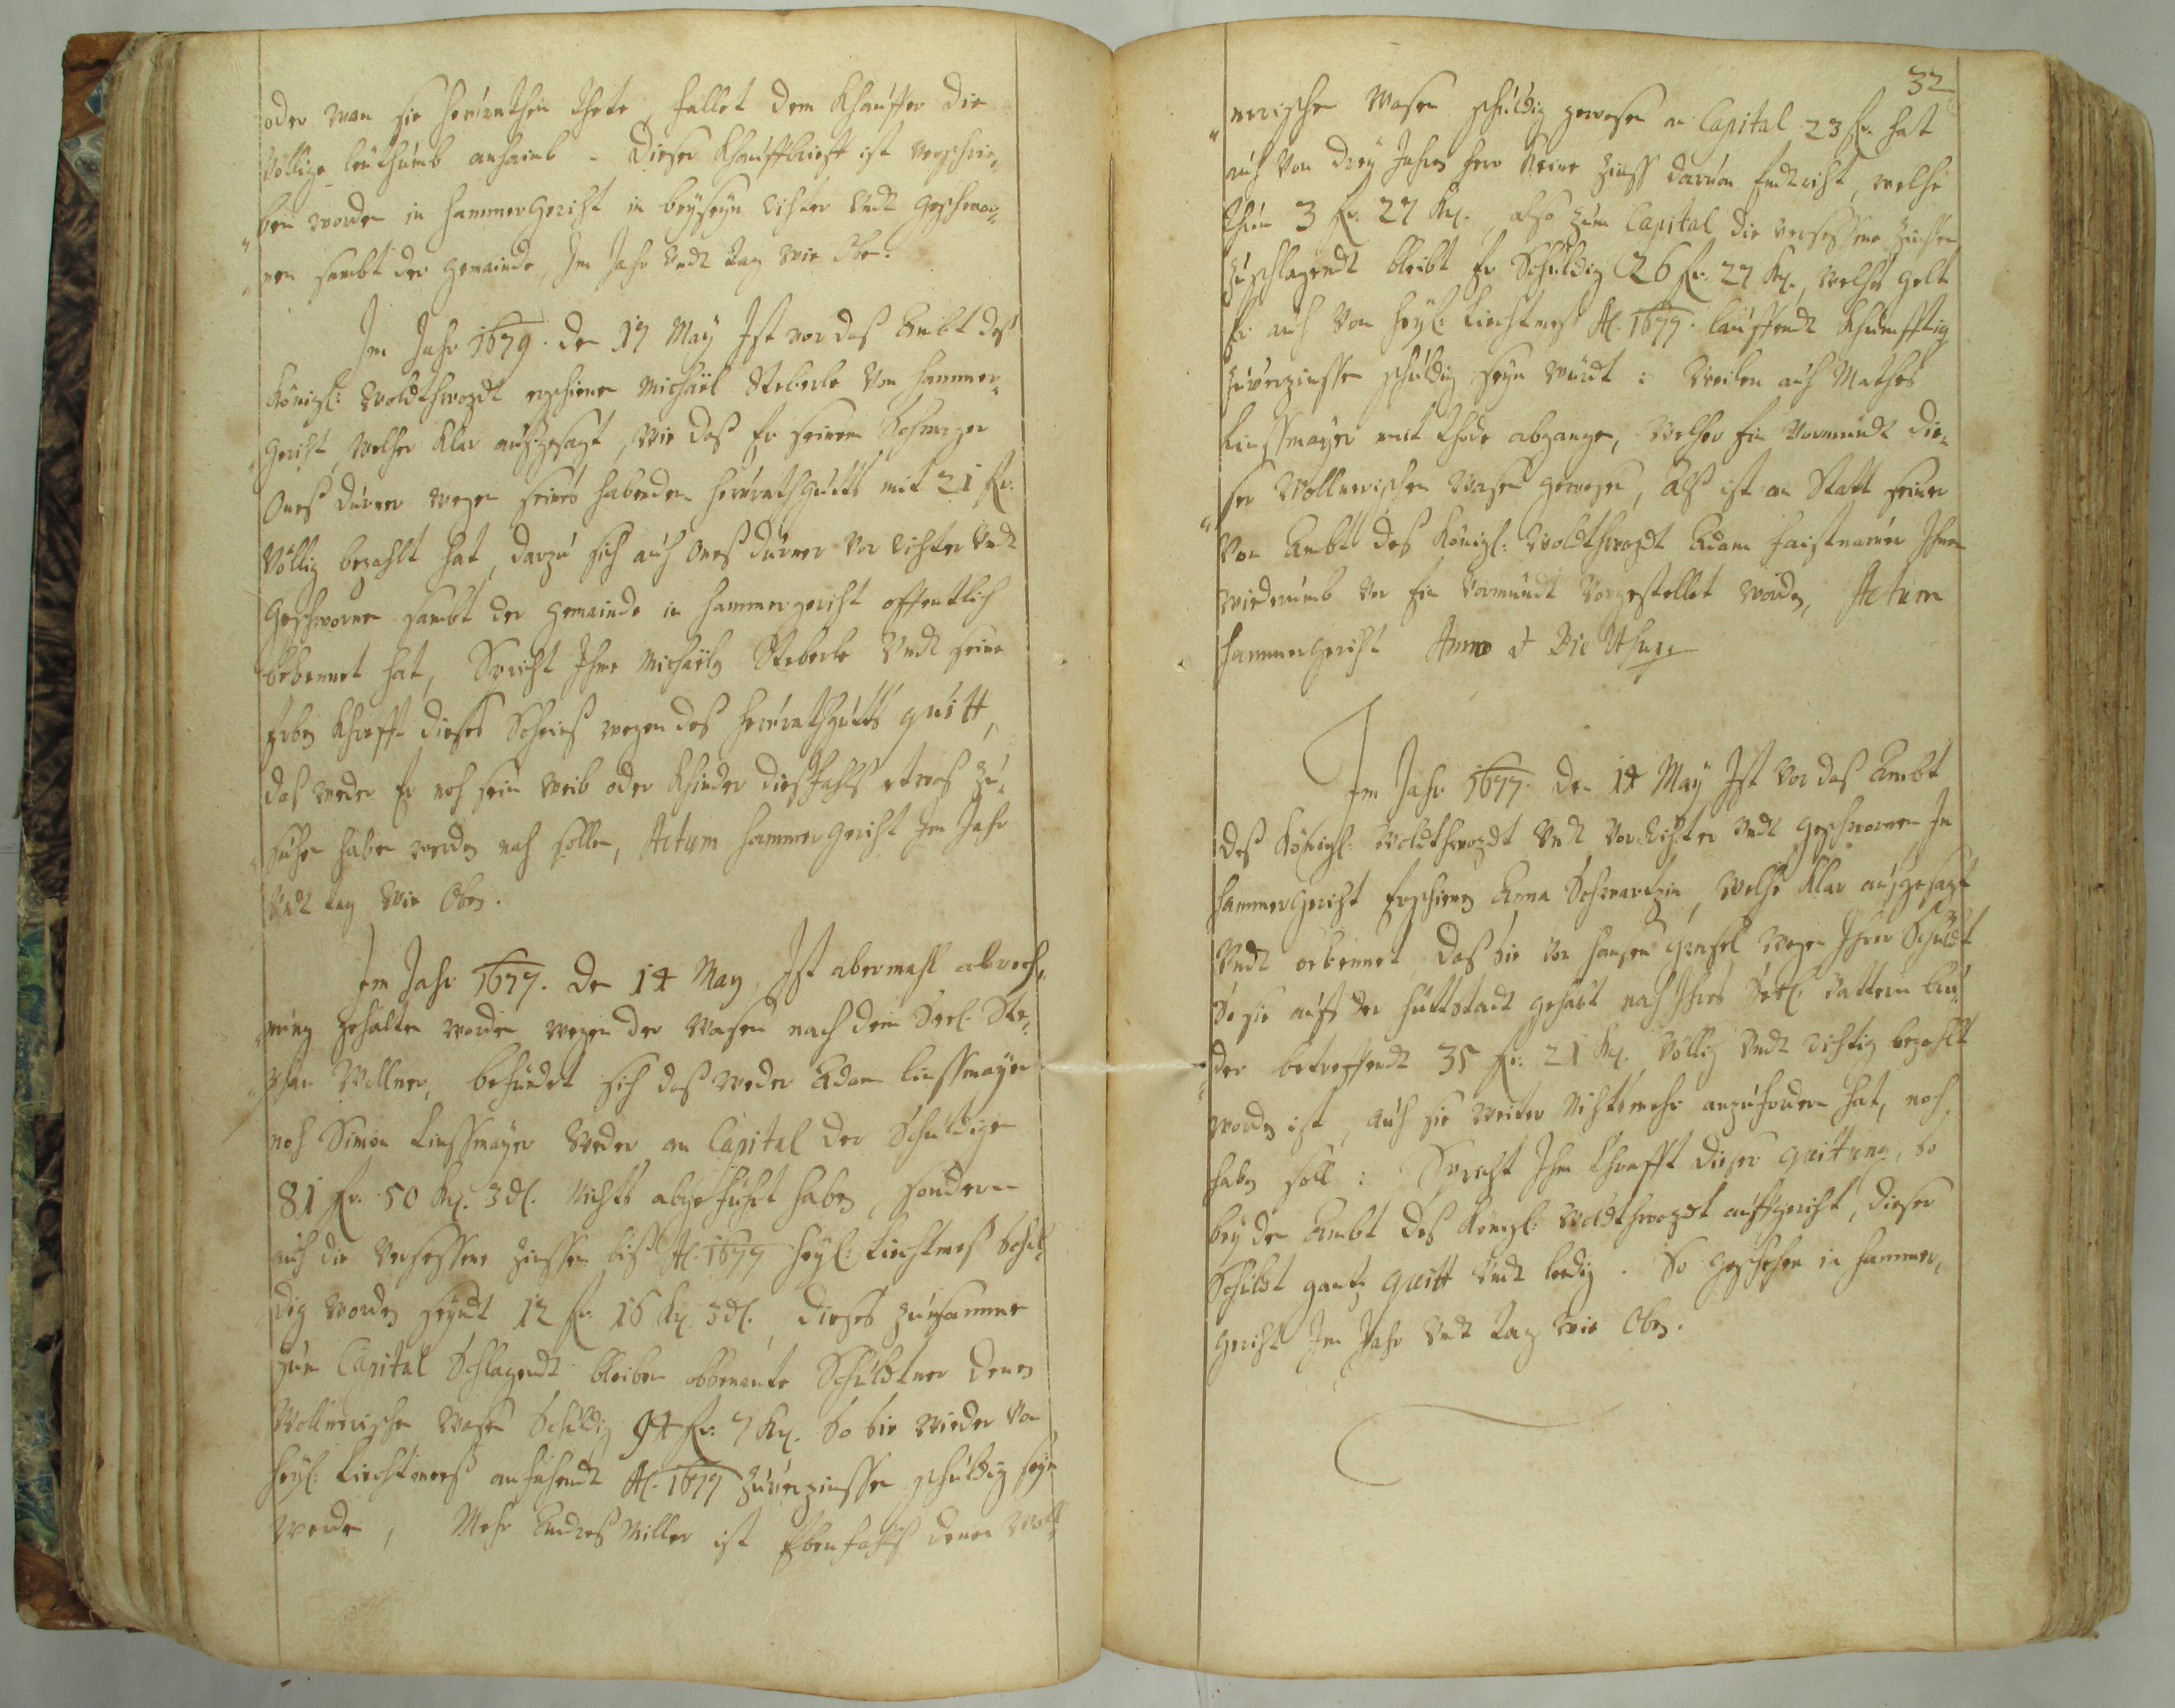 oder wan sie heürathen thete, fallet dem Khauffer die
Völlige leuthumb anhaimb. Dieser Khauffbrieff ist verschrie-
ben worden in hammer Gericht in beÿseÿn Richter Undt Geschwor-
nen sambt der gemainde, Im Jahr Undt Tag wie Oben.
Im Jahr 1679. den 17 Maÿ Ist vor das Ambt des
Königl: Woldthwozdt erschienen Michaël Steberle Von Hammer-
Gericht, welcher Klar auß gesagt, wie das Er seinem Schwager
duner wegen seines habenden heürathguetts mit 21 fr:
Völlig bezahlt hat, darzu sich auch duner Vor Richter Undt
Geschwornen sambt der gemainde in hammergericht offentlich
bekennet hat, Spricht Ihme Michaëln Steberle Undt seine
Erben Khrafft dieses Scheins wegen des heürathguetts quitt,
das weder Er noch sein weib oder Khinder diesfahls etwas zu
suchen haben werden noch sollen, Actum hammer Gericht Im Jahr
Undt tag wie Oben.
Im Jahr 1677. den 14 Maÿ, Ist abermahl abrech-
nung gehalten worden wegen der Wasen nach dem Seel. Ste-
phan Wollner, befindet sich das weder Adam linssmaÿer
noch Simon Linssmaÿer Weder am Capital der Schuldigen
81 fr. 50 Kr. 3 dl. Nichts abgeführt haben, sondern
auch die Versessene Zinssen biß A. 1677 heÿl: Liechtmeß Schul-
dig worden seÿndt 12 fr. 16 Kr. 3 dl., dieses zusamme
zum Capital Schlagendt bleiben obbenante Schuldtner denen
Wollnerischen Wasen Schuldig 94 fr: 7 Kr. So Sie wieder Von
heÿl: Liechtmeß anfahendt A. 1677 zuverzinssen schuldig seÿn
werden, Mehr Andreß Miller ist Ebenfahls denen Woll-
32
nerischen Wasen schuldig gewesen an Capital 23 fr. hat
auch Von dreÿ Jahren her Keine Zinss darvon Endtricht, welche
thuen 3 fr. 27 Kr., also zum Capital die versessene Zinssen
zuschlagendt bleibt Er Schuldig 26 fr. 27 Kr., welches gelt
Er auch Von heÿl: Liechtmeß A. 1677. lauffendt Khünfftig
zuverzinssen schuldig seÿn würdt: Weilen auch Matheß
Linssmaÿer mit thodt abgangen, Welcher Ein Vormundt die-
ser Wollnerischen Wasen gewesen, Alß ist an Statt seiner
Von Ambt des Königl: Woldthwozdt Adam Ihnen
wiederumb Vor Ein Vormundt Vorgestellet worden, Actum
hammer Gericht Anno et Die Ut supra
Im Jahr 1677. den 14 Maÿ Ist Vor das Ambt
deß Königl: Woldthwozdt Undt Vor Richter Undt geschwornen In
hammer Gericht Erschienen Anna Schwartzin, Welche Klar außgesagt
Undt bekennet das Sie Von hansen Grasel wegen Ihrer Schuldt
So sie auff der huettstadt gehabt nach Ihres Seel: Vattern Bru-
der betreffendt 35 fr: 21 Kr. Völlig Undt richtig bezahlt
worden ist, auch sie weiter Nichts mehr anzufordern hat, noch
haben soll: Spricht Ihn Khrafft dieser quittung, so
beÿ den Ambt des Königl: Woldthwozdt auffgericht, dieser
Schuldt gantz quitt Undt leedig. So geschehen in hammer-
gericht Im Jahr Undt Tag wie Oben.